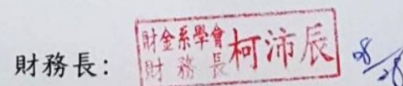 財務長: 財金系學會財務長柯沛辰 08/28